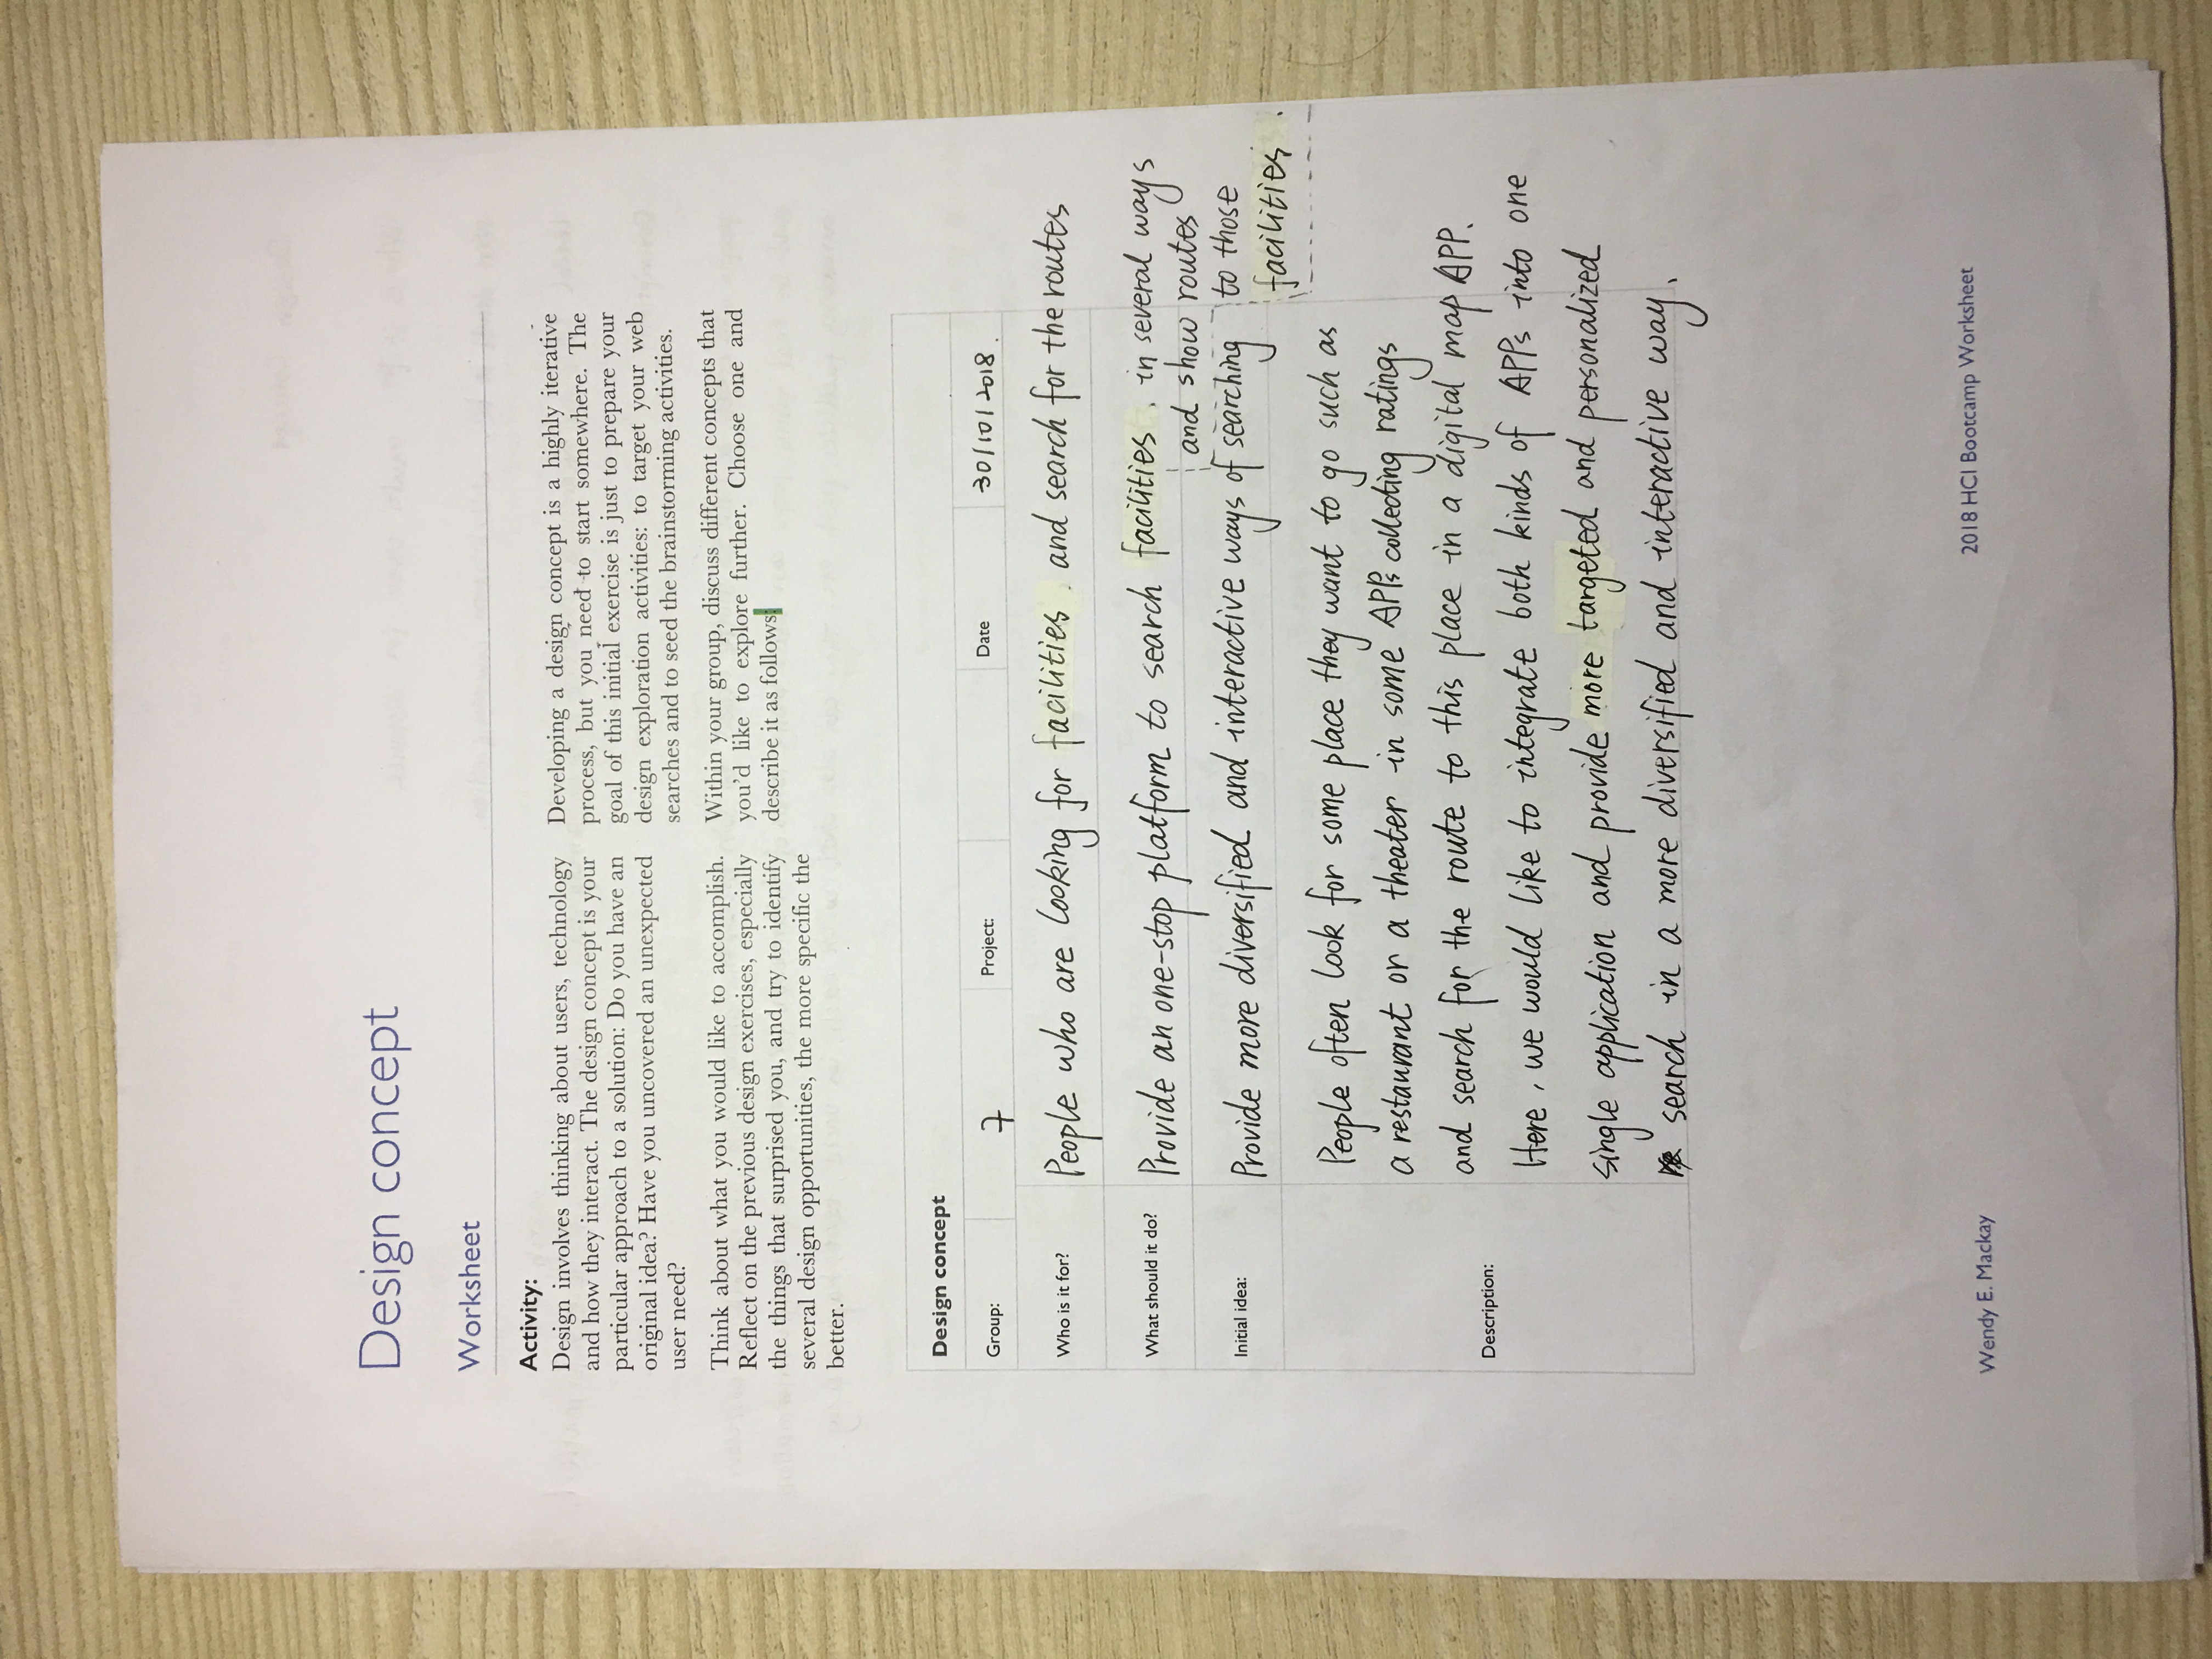 Design concept
Worksheet
Activity:
Design involves thinking about users, technology
and how they interact. The design concept is your
particular approach to a solution: Do you have an
original idea? Have you uncovered an unexpected
user need?
Think about what you would like to accomplish.
Reflect on the previous design exercises, especially
the things that surprised you, and try to identify
several design opportunities, the more specific the
better.
Developing a design concept is a highly iterative
process, but you need to start somewhere. The
goal of this initial exercise is just to prepare your
design exploration activities: to target your web
searches and to seed the brainstorming activities.
Within your group, discuss different concepts that
you'd like to explore further. Choose one and
describe it as follows:
Design concept
Group: 7 Project: Date 30/10/2018.
Who is it for? People who are looking for facilities and search for the routes
What should it do? Provide an one-stop platform to search facilities. in several ways
and show routes
to those
facilities.
Initial idea: Provide more diversified and interactive ways of searching
Description:
People often look for some place they want to go such as
a restaurant or a theater in some APPs collecting ratings
and search for the route to this place in a digital map APP.
Here, we would like to integrate both kinds of APPs into one
single application and provide more targeted and personalized
search in a more diversified and interactive way.
Wendy E. Mackay
2018 HCI Bootcamp Worksheet